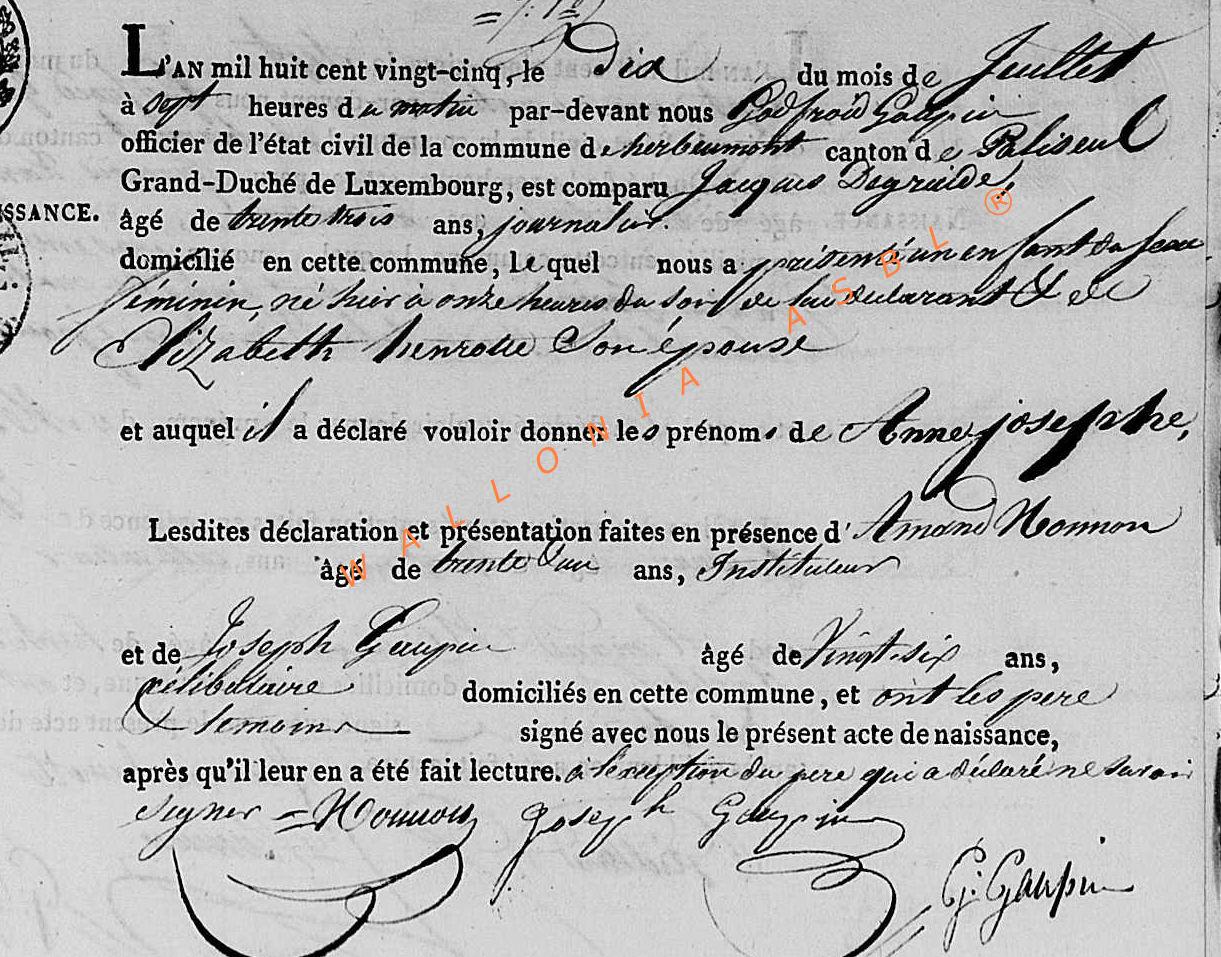 L'AN mil huit cent vingt-cinq, le Dix du mois de Juillet
à sept heures du matin par-devant nous Godfroid Gaupin
officier de l'état civil de la commune de herbeumont canton de Paliseul
Grand-Duché de Luxembourg, est comparu Jacques
ISSANCE. âgé de trente trois ans, journalier.
domicilié en cette commune, Lequel nous a présenté un enfant du sexe
féminin, né hier à onze heures du soir de lui déclarant & de
Elizabeth henrotte Son épouse
et auquel il a déclaré vouloir donner les prénoms de Anne josephe,
Lesdites déclaration et présentation faites en présence d' Amand
âgé de trente un ans, Instituteur
et de Joseph Gaupin âgé de Vingt-six ans,
célibataire domiciliés en cette commune, et ont les pere
& temoins signé avec nous le présent acte de naissance,
après qu'il leur en a été fait lecture. a l'exception du pere qui a déclaré ne savoir
signer = Joseph Gaupin
G: Gaupin
WALLONIA ASBL ®